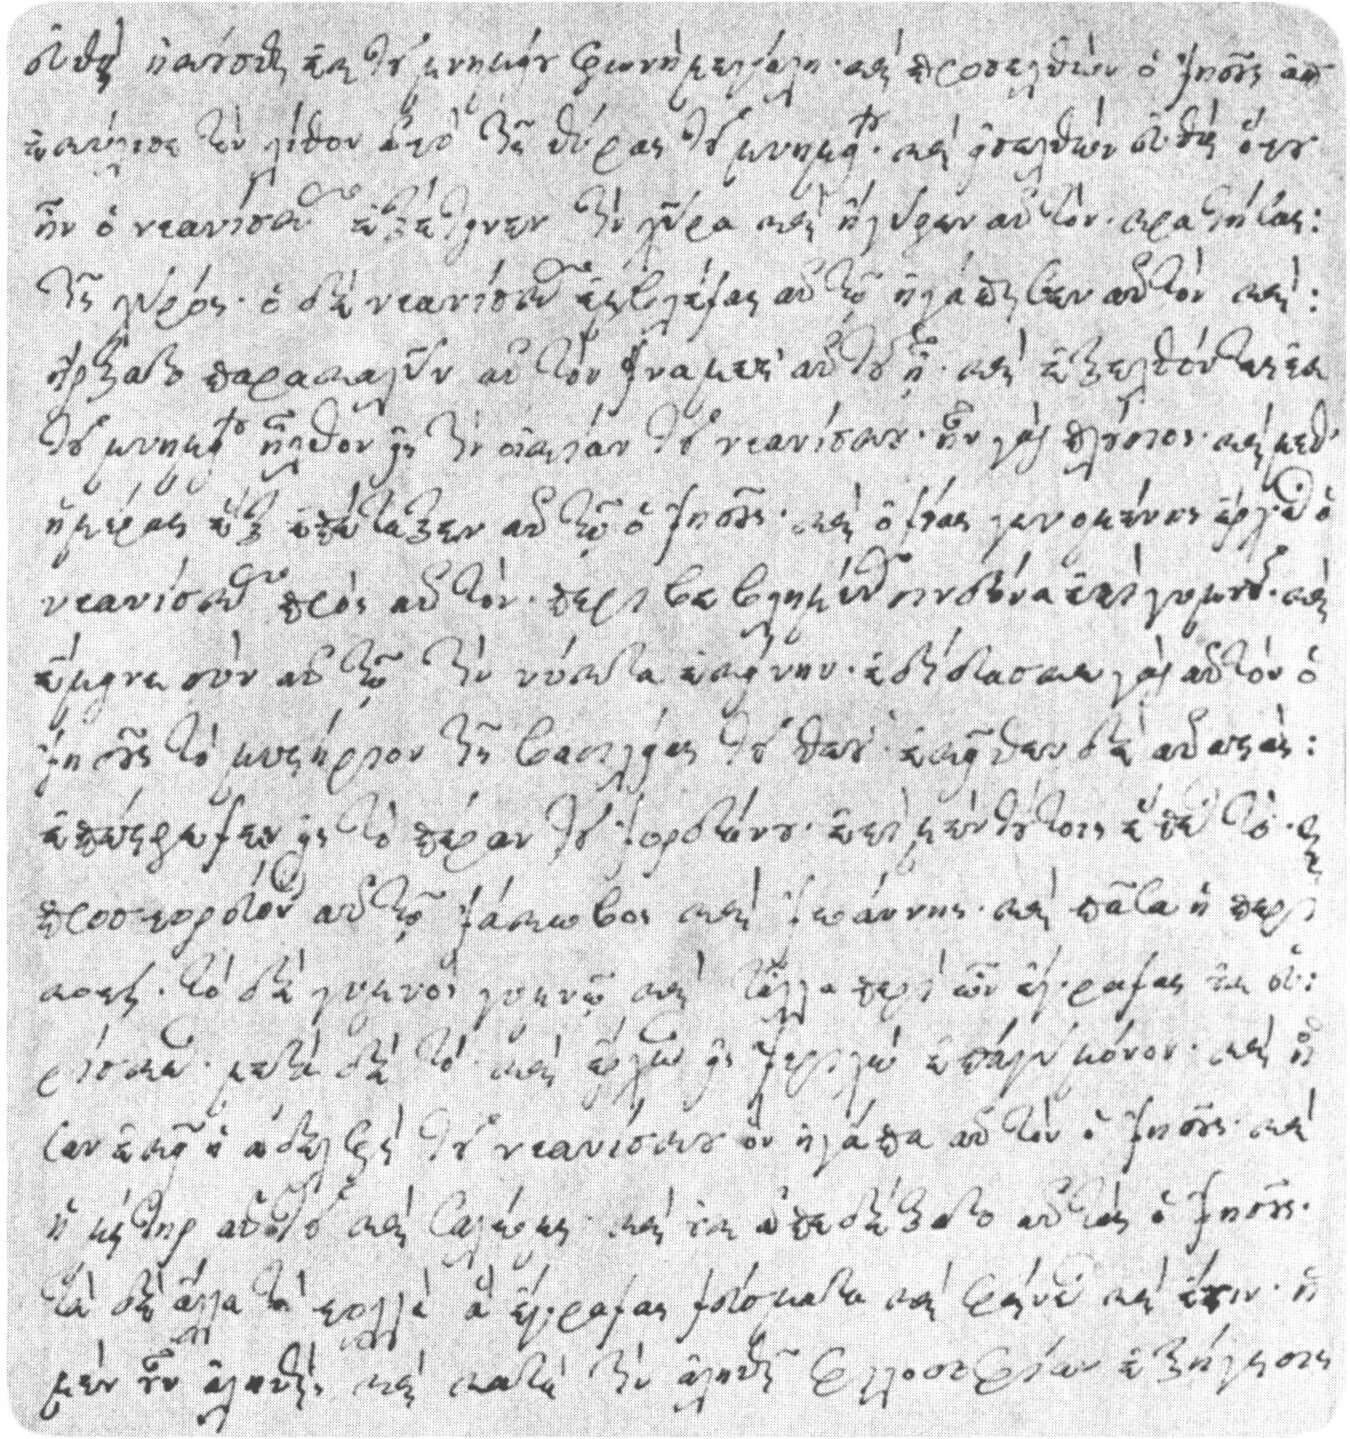 εὐθὺς ἠκούσθη ἐκ τοῦ μνημείου φωνὴ μεγάλη· καὶ προσελθὼν ὁ Ἰησοῦς ἀπ
εκύλισε τὸν λίθον ἀπὸ τῆς θύρας τοῦ μνημείου· καὶ εἰσελθὼν εὐθὺς ὅπου
ἦν ὁ νεανίσκος ἐξέτεινεν τὴν χεῖρα καὶ ἤγειρεν αὐτὸν· κρατήσας:
τῆς χειρός· ὁ δὲ νεανίσκος ἐμβλέψας αὐτῷ ἠγάπησεν αὐτὸν καὶ:
ἤρξατο παρακαλεῖν αὐτὸν ἵνα μετ' αὐτοῦ ᾖ· καὶ ἐξελθόντες ἐκ
τοῦ μνημείου ἦλθον εἰς τὴν οἰκίαν τοῦ νεανίσκου· ἦν γὰρ πλούσιος· καὶ μεθ'
ἡμέρας ἓξ ἐπέταξεν αὐτῷ ὁ Ἰησοῦς· καὶ ὀψίας γενομένης ἔρχεται ὁ
νεανίσκος πρὸς αὐτὸν· περιβεβλημένος σινδόνα ἐπὶ γυμνοῦ· καὶ
ἔμεινε σὺν αὐτῷ τὴν νύκτα ἐκείνην· ἐδίδασκε γὰρ αὐτὸν ὁ
Ἰησοῦς τὸ μυστήριον τῆς βασιλείας τοῦ θεοῦ· ἐκεῖθεν δὲ ἀναστὰς:
ἐπέστρεψεν εἰς τὸ πέραν τοῦ Ἰορδάνου· ἐπὶ μὲν τούτοις ἕπεται τὸ· καὶ
προσπορεύονται αὐτῷ Ἰάκωβος καὶ Ἰωάννης· καὶ πᾶσα ἡ περι
κοπή· τὸ δὲ γυμνὸς γυμνῷ καὶ τἆλλα περὶ ὧν ἔγραψας οὐκ εὑ:
ρίσκεται· μετὰ δὲ τὸ· καὶ ἔρχεται εἰς Ἰεριχὼ ἐπάγει μόνον· καὶ ἦ
σαν ἐκεῖ ἡ ἀδελφὴ τοῦ νεανίσκου ὃν ἠγάπα αὐτὸν ὁ Ἰησοῦς· καὶ
ἡ μήτηρ αὐτοῦ καὶ Σαλώμη· καὶ οὐκ ἀπεδέξατο αὐτὰς ὁ Ἰησοῦς·
τὰ δὲ ἄλλα τὰ πολλὰ ἃ ἔγραψας ψεύσματα καὶ φαίνεται καὶ ἔστιν· ἡ
μὲν οὖν ἀληθὴς καὶ κατὰ τὴν ἀληθῆ φιλοσοφίαν ἐξήγησις